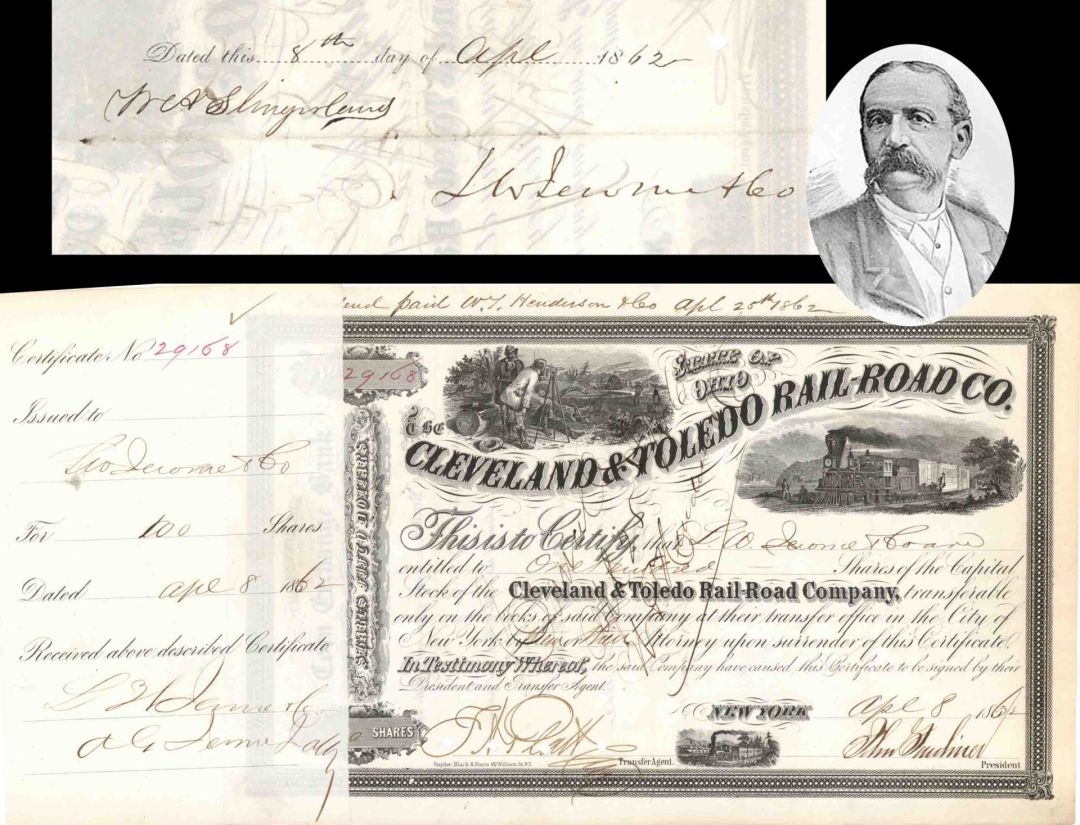 Dated this 8th day of Apl 1862
L W Jerome & Co
Dividend paid W. T. Henderson & Co Apl 25th 1862
Certificate No 29168
Issued to
L W Jerome & Co
For 100 Shares
Dated Apl 8 1862
Received above described Certificate
L W Jerome & Co
29168
STATE OF OHIO
THE CLEVELAND & TOLEDO RAIL-ROAD CO.
This is to Certify, that L. W. Jerome & Co are
entitled to One Hundred Shares of the Capital
Stock of the Cleveland & Toledo Rail-Road Company, transferable
only on the books of said Company at their transfer office in the City of
New York by Attorney upon surrender of this Certificate.
In Testimony Whereof, the said Company have caused this Certificate to be signed by their
President and Transfer Agent.
NEW YORK Apl 8 1862
SHARES
Transfer Agent.
President
Snyder, Black & Sturn 92 William St. N.Y.